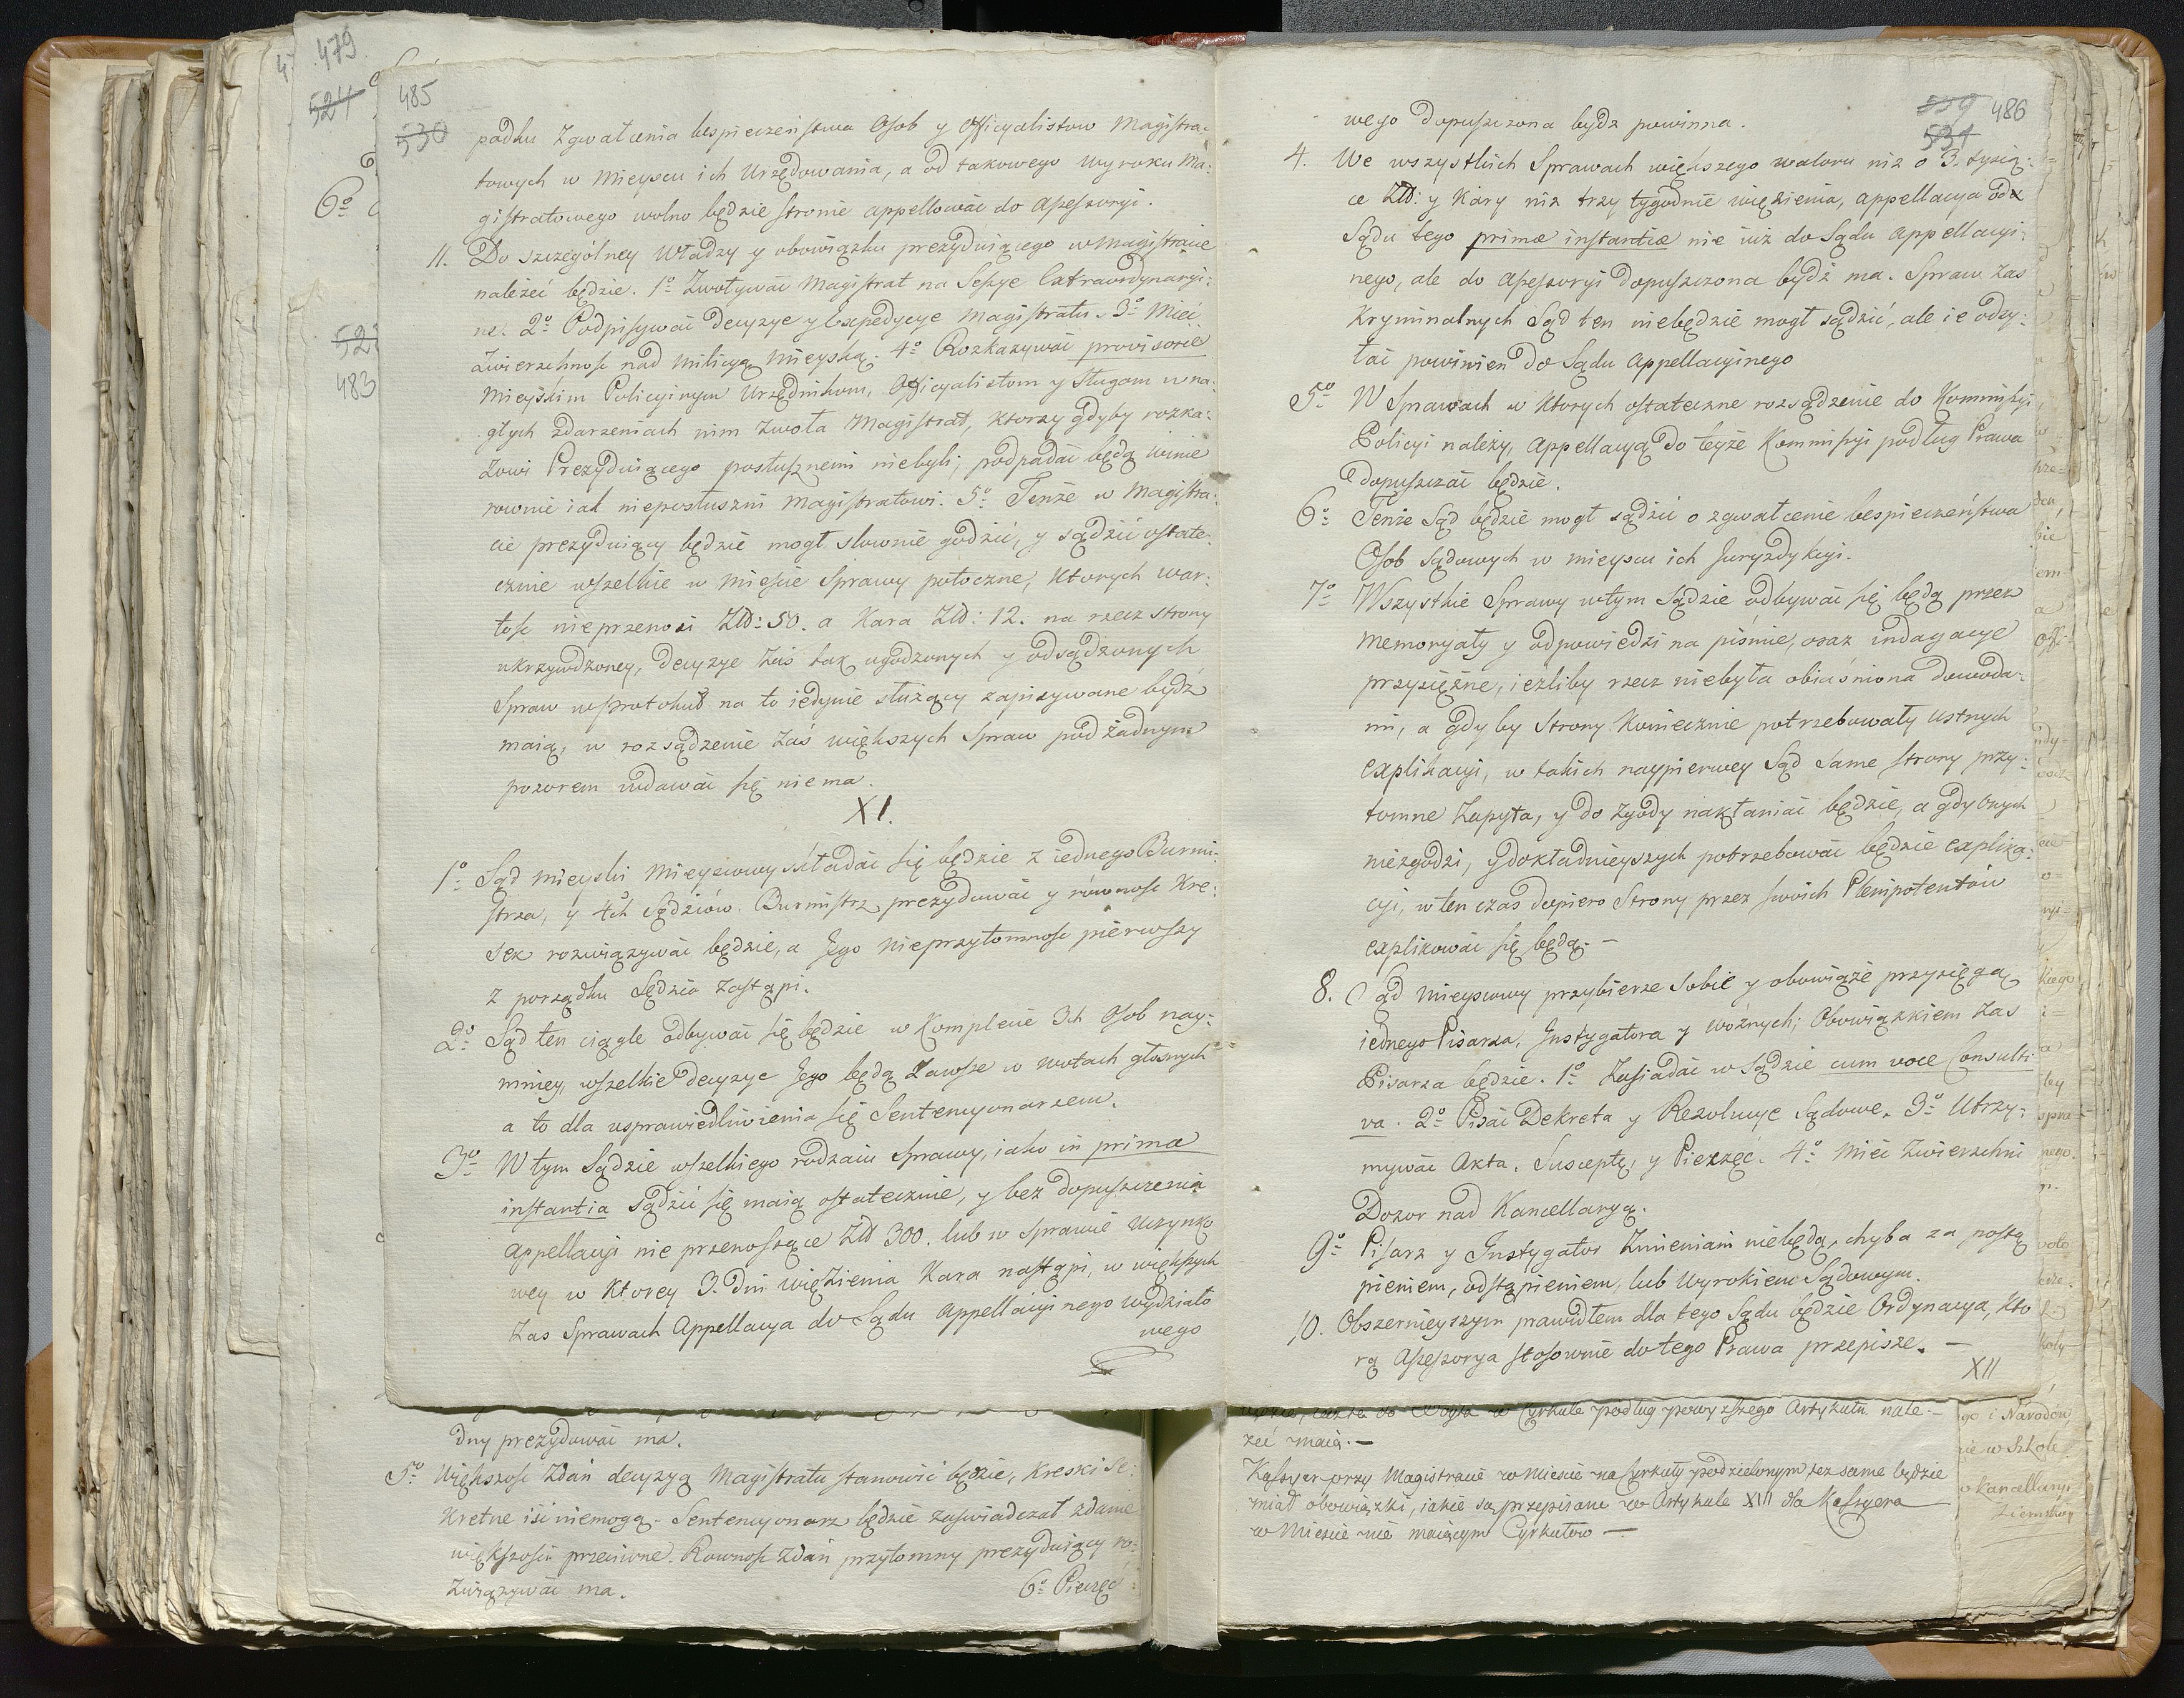 479
524
6º
527
483
485
530
padku zgwałcenia bespieczeństwa Osob y Officyalistow Magistra:
towych w Mieyscu ich Urzędowania, a od takowego wyroku Ma:
gistratowego wolno będzie stronie appellować do Assessoryi.
11. Do szczególney Władzy y obowiązku prezyduiącego w Magistracie
należeć będzie. 1º Zwoływać Magistrat na Sessye Extraordynaryi:
ne. 2º Podpisywać decyzye y Expedycye Magistratu. 3º Mieć
Zwierzchność nad Milicyą Mieyską. 4º Rozkazywać provisorie
Mieyskim Policyinym Urzędnikom, Officyalistom y Sługom w na:
głych zdarzeniach nim zwoła Magistrat, ktorzy gdyby rozka:
zowi Prezyduiącego posłusznemi niebyli, podpadać będą winie
rownie iak nieposłuszni Magistratowi. 5º Tenże w Magistra:
cie prezyduiący będzie mogł słownie godzić, y sądzić ostate:
cznie wszelkie w Mieście Sprawy potoczne, ktorych war:
tość nieprzenosi Złł: 50. a Kara Złł: 12. na rzecz strony
ukrzywdzoney, decyzye zaś tak ugodzonych y odsądzonych
Spraw w protokuł na to iedynie służący zapisywane bydź
maią, w rozsądzenie zaś większych Spraw pod żadnym
pozorem wdawać się nie ma.
XI.
1º Sąd mieyski Mieyscowy składać się będzie z iednego Burmi:
strza, y 4ch Sędziów. Burmistrz prezydować y równość Kre:
sek rozwiązywać będzie, a Jego nieprzytomność pierwszy
z porządku Sędzia zastąpi.
2º Sąd ten ciągle odbywać się będzie w Komplecie 3ch Osob nay:
mniey, wszelkie decyzye Jego będą zawsze w wotach głosnych
a to dla usprawiedliwienia się Sentencyonarzem.
3º W tym Sądzie wszelkiego rodzaiu Sprawy, iako in prima
instantia sądzić się maią ostatecznie, y bez dopuszczenia
Appellacyi nie przenoszące Złł 300. lub w Sprawie Uczynko
wey w ktorey 3. dni więzienia Kara nastąpi, w większych
zas Sprawach Appellacya do Sądu Appellacyinego wydziało
wego
dny prezydować ma.
5º Większość Zdań decyzyą Magistratu stanowić będzie, Kreski Se:
kretne iść niemogą. Sentencyonarz będzie zaświadczał zdanie
większości przeciwne. Rowność Zdań przytomny prezyduiący ro:
związywać ma.
6º Pieczęć
539 486
531
wego dopuszczona bydz powinna.
4. We wszystkich Sprawach większego waloru niż o 3. tysią:
ce Złł: y Kary niż trzy tygodnie więzienia, appellacya od
Sądu tego primæ instantiæ nie iuż do Sądu Appellacyi:
nego, ale do Assessoryi dopuszczona bydź ma. Spraw zas
Kryminalnych Sąd ten niebędzie mogł sądzić, ale ie odsy:
łać powinien do Sądu Appellacyinego
5º W Sprawach w ktorych ostateczne rozsądzenie do Kommissyi
Policyi należy, Appellacyą do teyże Kommissyi podług Prawa
dopuszczać będzie.
6º Tenże Sąd będzie mogł sądzić o zgwałcenie bespieczeństwa
Osob Sądowych w mieyscu ich Juryzdykcyi.
7º Wszystkie Sprawy w tym Sądzie odbywać się będą przez
Memoryały y odpowiedzi na piśmie, oraz indagacye
przysiężne, ieżliby rzecz niebyła obiaśniona dowoda:
mi, a gdy by Strony koniecznie potrzebowały ustnych
explikacyi, w takich naypierwey Sąd same strony przy:
tomne zapyta, y do zgody nakłaniać będzie, a gdy onych
niezgodzi, y dokładnieyszych potrzebować będzie explika:
cyi, w ten czas dopiero Strony przez swoich Plenipotentów
explikować się będą. —
8. Sąd mieyscowy przybierze sobie y obowiąże przysięgą
iednego Pisarza, Instygatora y Woźnych; Obowiązkiem zas
Pisarza będzie. 1º Zasiadać w Sądzie cum voce Consulti
va. 2º Pisać Dekreta y Rezolucye Sądowe. 3º Utrzy:
mywać Akta, Susceptę, y Pieczęć. 4º Mieć Zwierzchni
Dozor nad Kancellaryą.
9º Pisarz y Instygator zmieniani niebędą, chyba za postą
pieniem, odstąpieniem, lub Wyrokiem Sądowym.
10. Obszernieyszym prawidłem dla tego Sądu będzie Ordynacya, Kto
rą Assessorya stosownie do tego Prawa przepisze. —
XII
w Cyrkule podług powyższego Artykułu nale-
żeć maią. —
Kassyer przy Magistracie w Mieście na Cyrkuły podzielonym też same będzie
miał obowiązki, iakie są przepisane w Artykule XIII dla Kassyera
w Mieście nie maiącym Cyrkułow —
go i Narodow,
nie w Szkole
o Kancellaryi
Ziemskiey